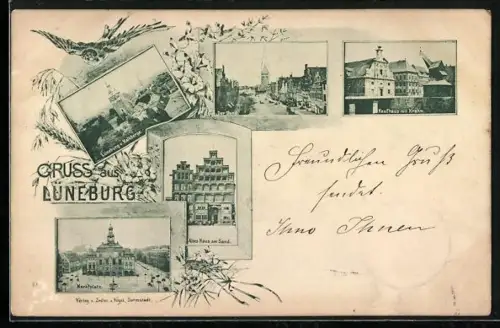 GRUSS aus
LÜNEBURG
Kaufhaus mit Krahn.
Altes Haus am Sand.
Marktplatz.
Verlag v. Zedler & Vogel, Darmstadt.
Freundlichen Gruß
sendet.
Ihno